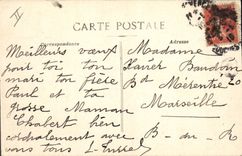 CARTE POSTALE
Correspondance
Adresse
Meilleurs vœux
pour toi ton
mari ton frère
Paul et ta
grosse Maman
Chabert bien
cordialement avec
vous tous
Madame
Xavier Baudoin
Bd Merentié 20
Marseille
B-du-R